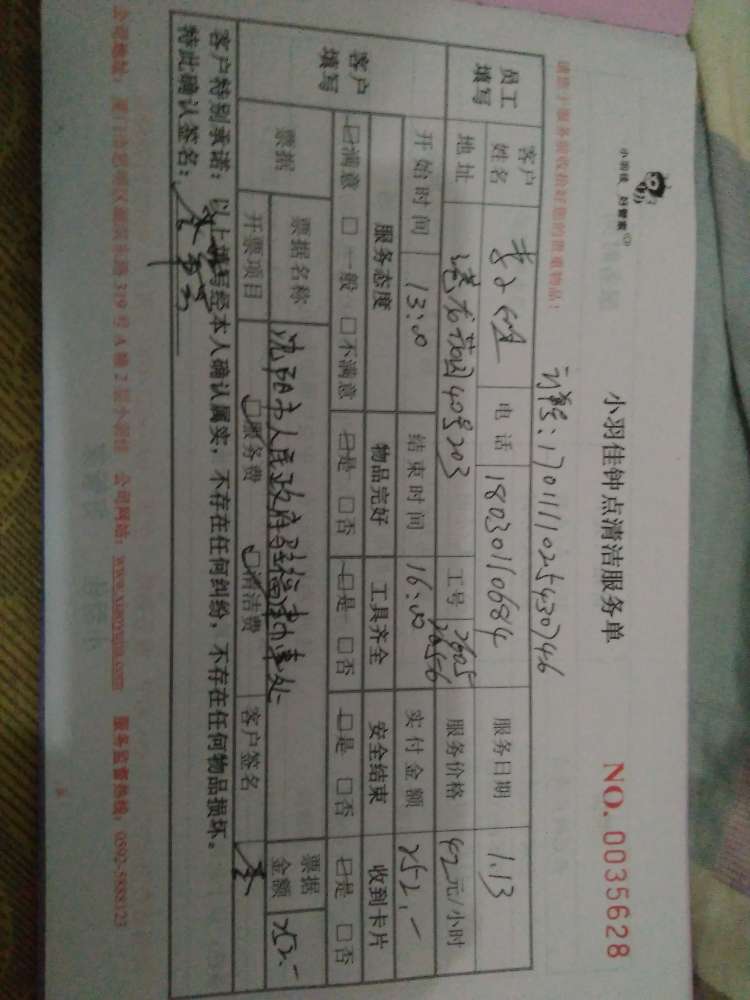 小羽佳 好管家
小羽佳钟点清洁服务单
NO. 0035628
请您于服务前收拾好您的贵重物品！
订单号：1701111025430746
员工填写
客户姓名
电话 18030110684
服务日期 1.13
地址 港龙花园40号203
工号 2605 26556
服务价格 42元/小时
开始时间 13:00
结束时间 16:00
实付金额 252.-
客户填写
服务态度 物品完好 工具齐全 安全结束 收到卡片
☑满意 □一般 □不满意 ☑是 □否 ☑是 □否 ☑是 □否 ☑是 □否
票据
票据名称 沈阳市人民政府驻厦办事处
票据金额 252.-
开票项目 ☑服务费 ☑清洁费 客户签名
客户特别承诺：以上填写经本人确认属实，不存在任何纠纷，不存在任何物品损坏。
特此确认签名：
公司地址： 319号A幢2层小羽佳 公司网站：www.xiaoyujia.com 服务监督热线：0592-5888123